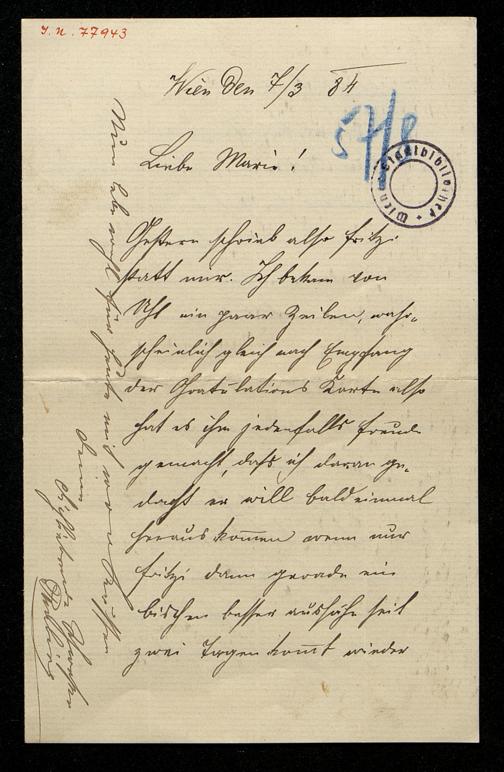 J.N. 77943
Wien den 7/3 84
57/8
Wien Stadtbibliothek
Liebe Marie!
Gestern schrieb also Fritzi
statt mir. Ich bekam von
Uhl ein paar Zeilen, wahr-
scheinlich gleich nach Empfang
der Gratulations Karte also
hat es ihm jedenfalls Freude
gemacht, daß ich daran ge-
dacht er will bald einmal
heraus kommen wenn nur
Fritzi dann gerade ein
bischen besser aussähe seit
zwei Tagen kommt wieder
Nun lebe wohl für heute
Deine
Dich